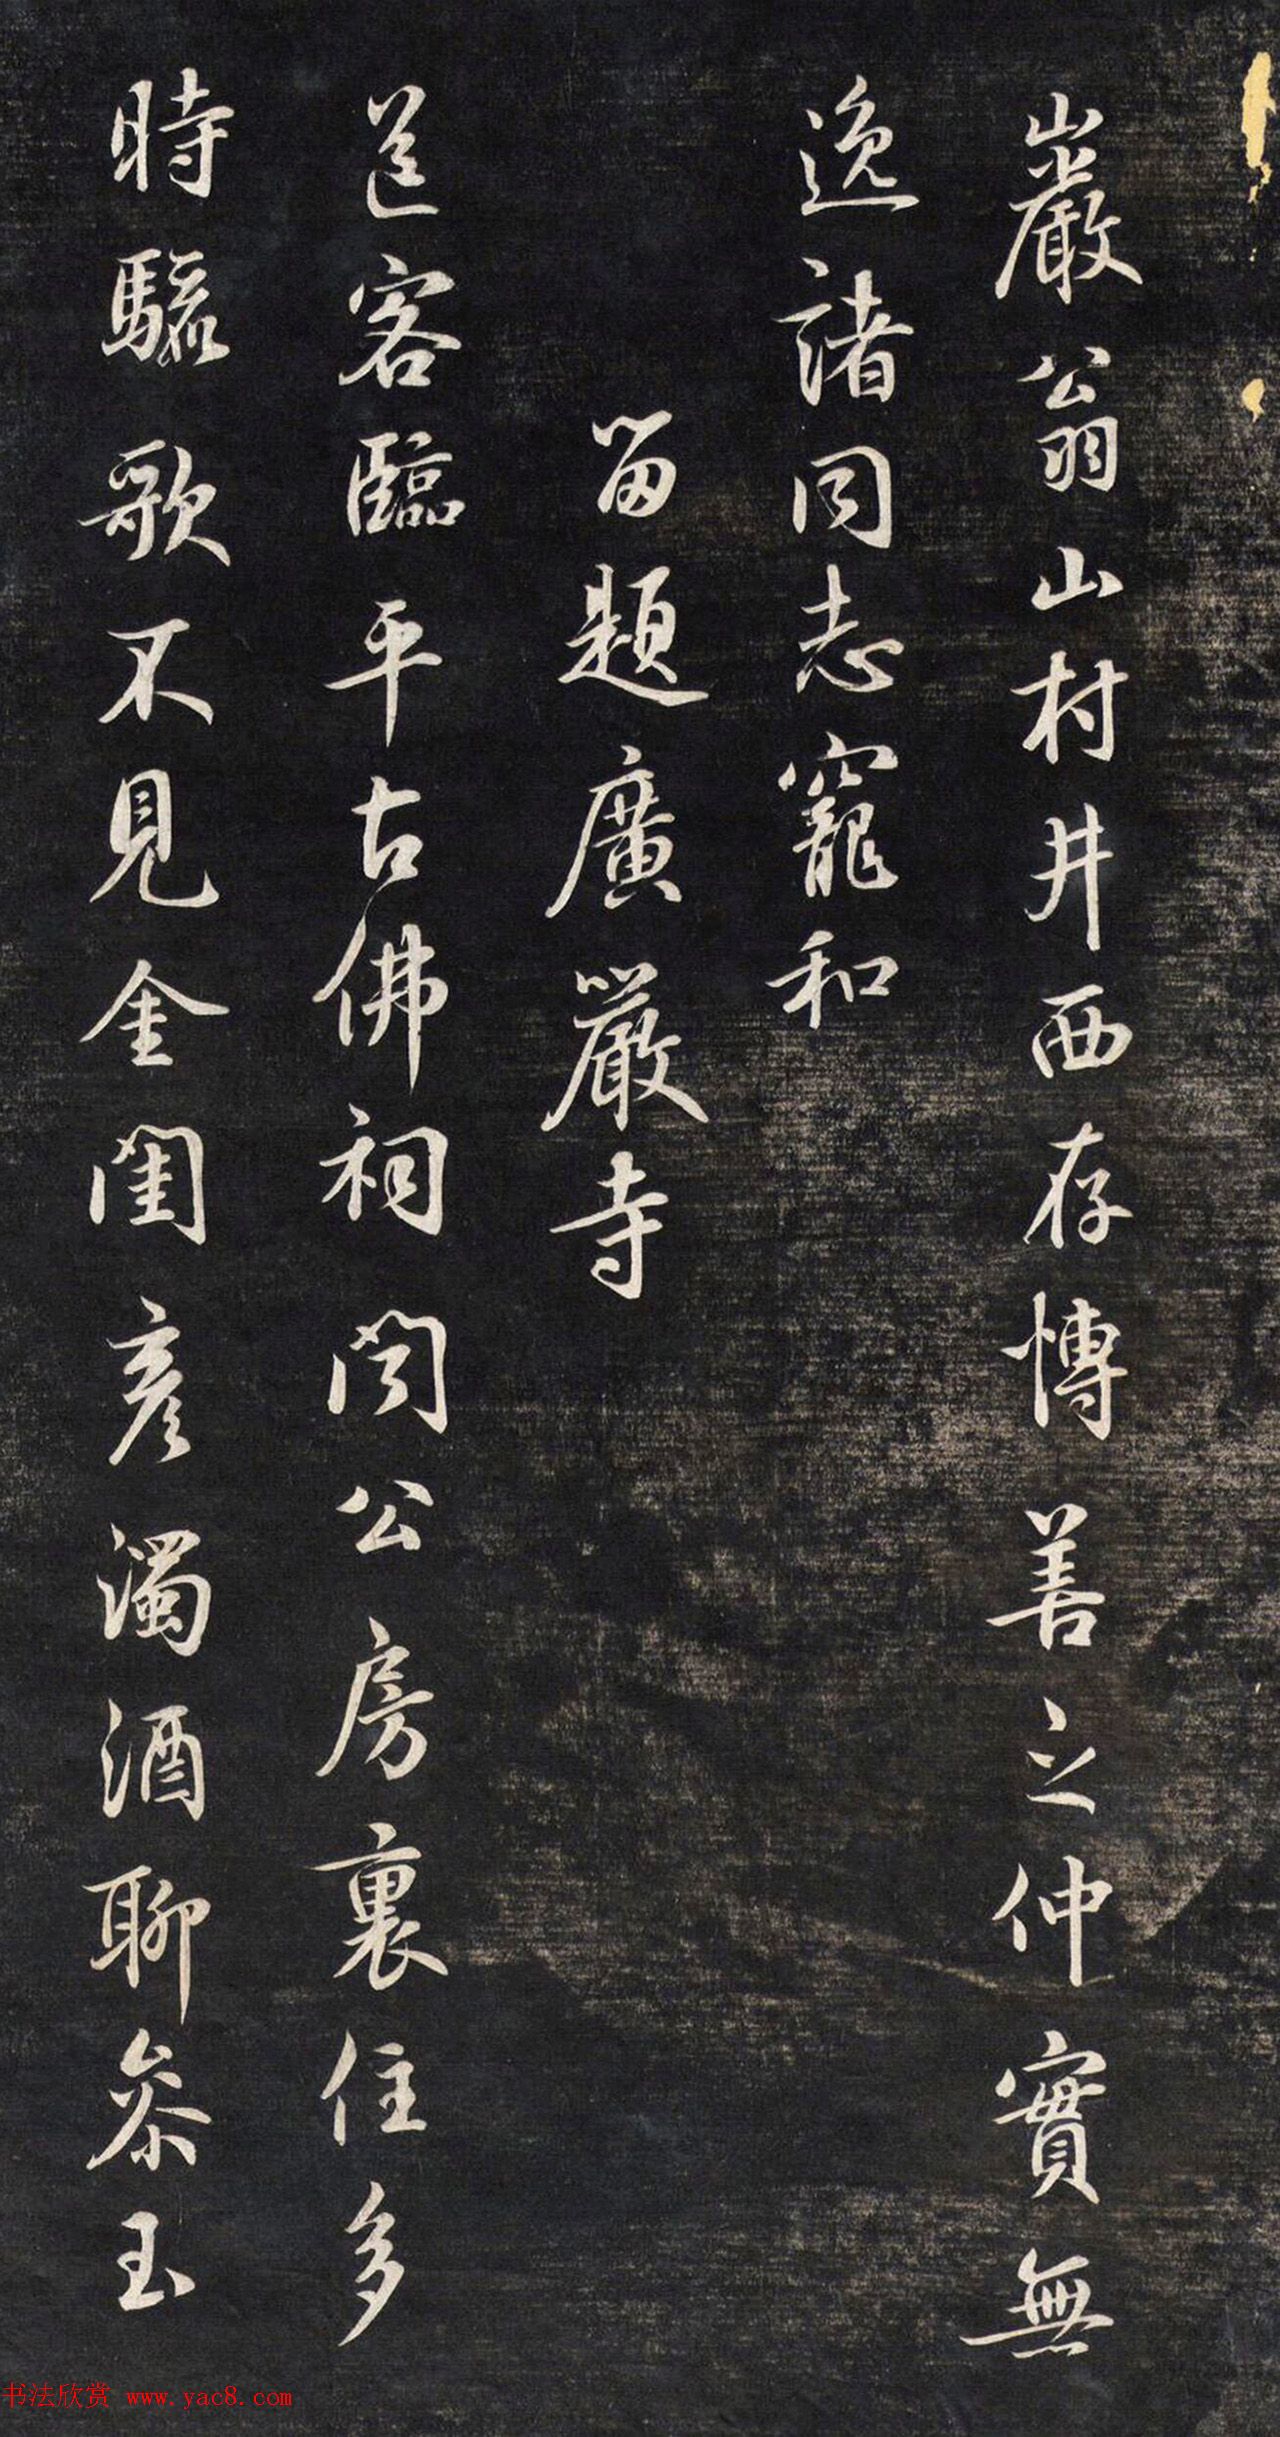 巖翁山村井西存博善之仲實無
逸諸同志寵和
留題廣嚴寺
送客臨平古佛祠閔公房裏住多
時驪歌不見金閨彥濁酒聊參玉
书法欣赏 www.yac8.com